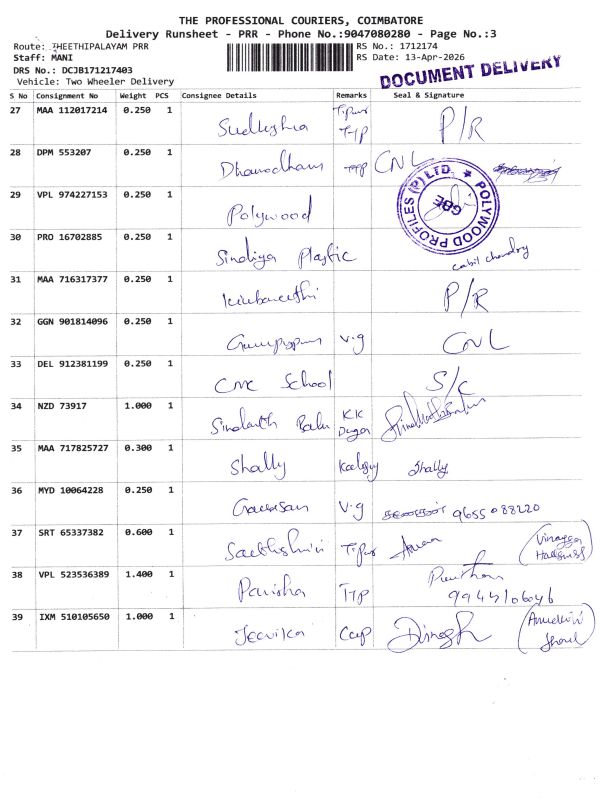 THE PROFESSIONAL COURIERS, COIMBATORE
Delivery Runsheet - PRR - Phone No.:9047080280 - Page No.:3
Route: THEETHIPALAYAM PRR
RS No.: 1712174
Staff: MANI
RS Date: 13-Apr-2026
DRS No.: DCJB171217403
Vehicle: Two Wheeler Delivery
DOCUMENT DELIVERY
S No Consignment No Weight PCS Consignee Details Remarks Seal & Signature
27 MAA 112017214 0.250 1 TTP P/R
28 DPM 553207 0.250 1 TTP CNL
29 VPL 974227153 0.250 1 Polywood
POLYWOOD PROFILES (P) LTD. GBE
30 PRO 16702885 0.250 1 Sindiya Plastic
31 MAA 716317377 0.250 1 P/R
32 GGN 901814096 0.250 1 V.g CNL
33 DEL 912381199 0.250 1 CMC School S/C
34 NZD 73917 1.000 1 Sindanth Balu KK
35 MAA 717825727 0.300 1 Shally Shally
36 MYD 10064228 0.250 1 V.g 9655088220
37 SRT 65337382 0.600 1
38 VPL 523536389 1.400 1 Pavisha TTP
39 IXM 510105650 1.000 1 Jeevika Dinesh